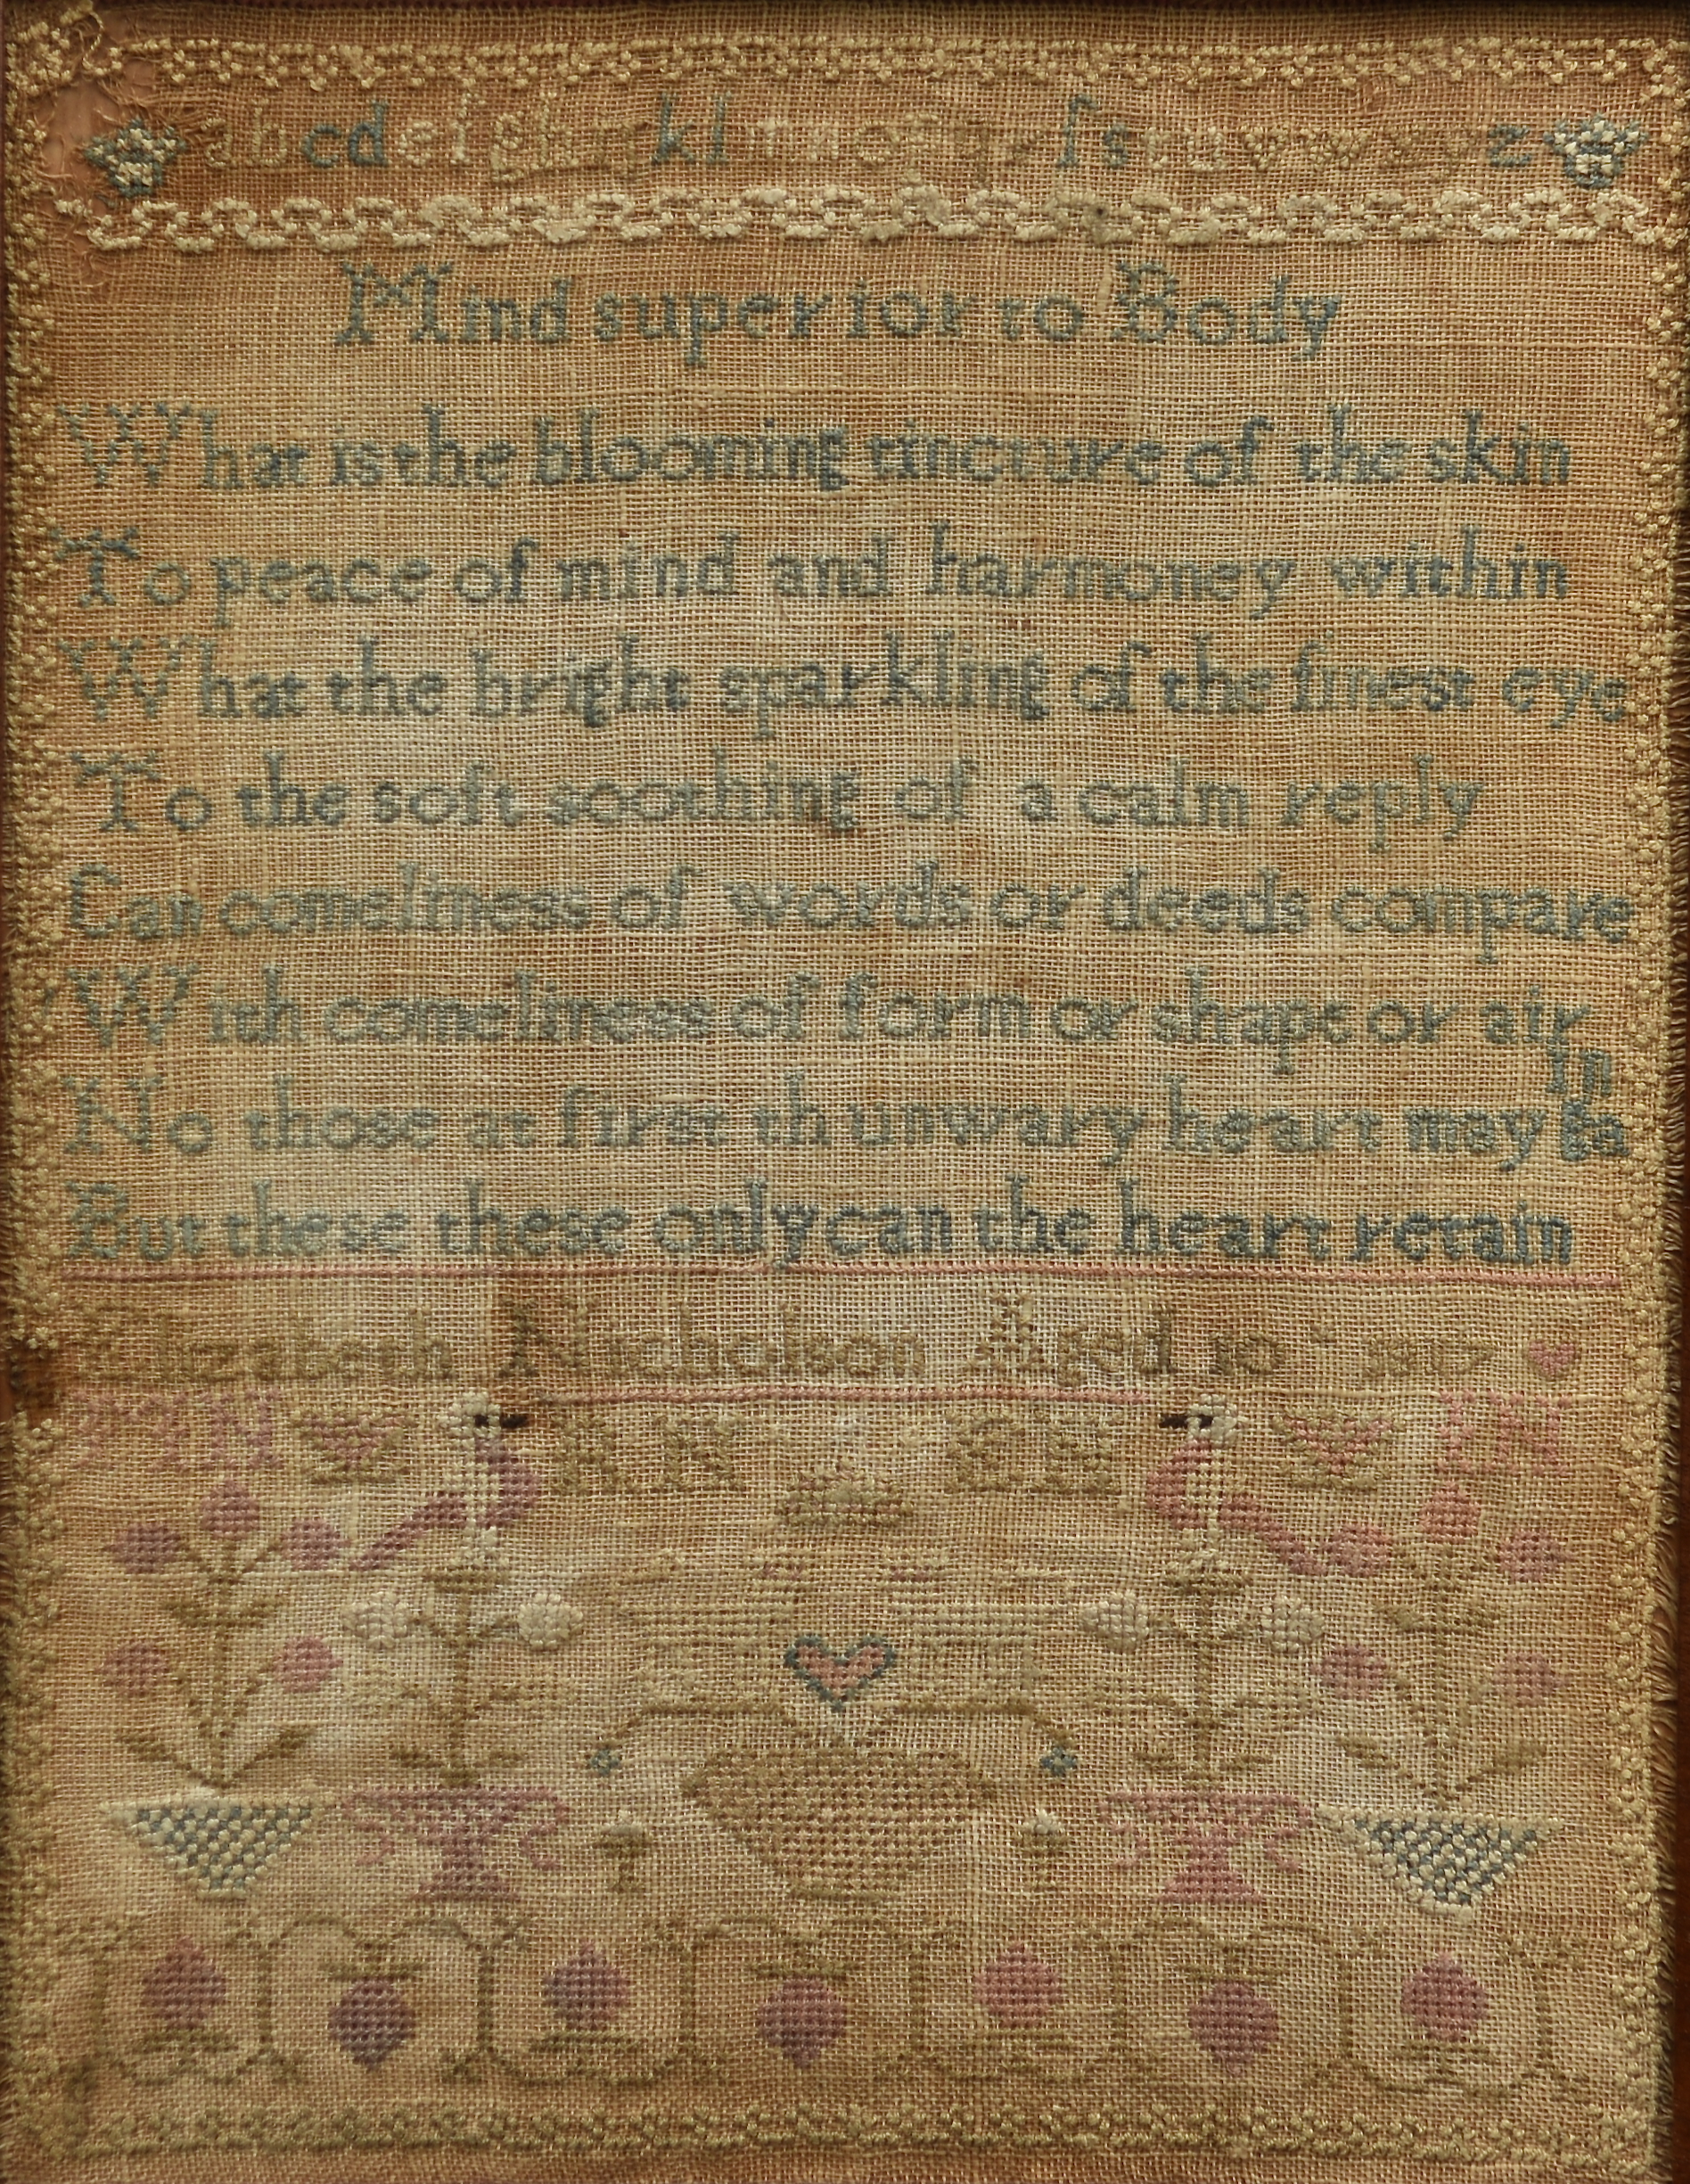 abcdefgh kl mnopq ſstuvw z
Mind superior to Body
What is the blooming tincture of the skin
To peace of mind and harmoney within
What the bright sparkling of the finest eye
To the soft soothing of a calm reply
Can comeliness of words or deeds compare
With comeliness of form or shape or air
No those at first th unwary heart may ga in
But these these only can the heart retain
Elizabeth Nicholson Aged 10
EN IN